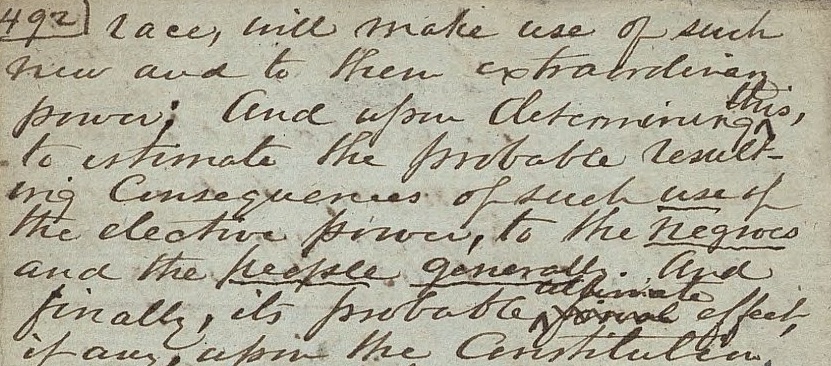 492] race, will make use of such
new and to them extraordinary
power; And upon determining this,
to estimate the probable result-
ing Consequences of such use of
the elective power, to the negroes
and the people generally. And
finally, its probable ultimate effect,
if any, upon the Constitution,